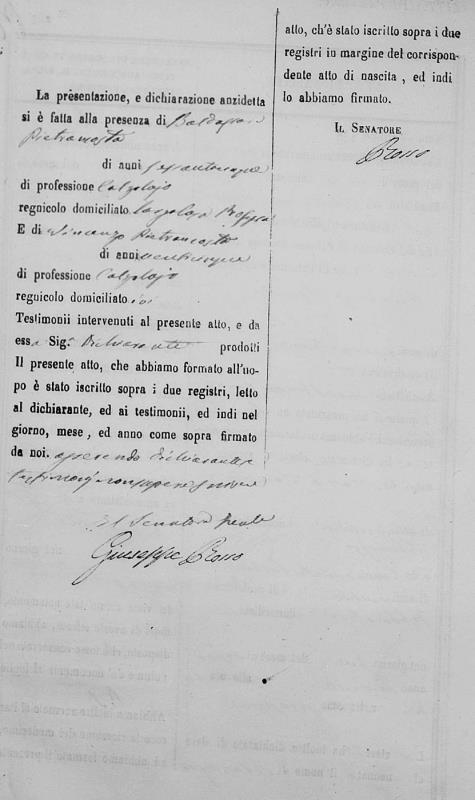 La presentazione, e dichiarazione anzidetta
si è fatta alla presenza di Baldassare
Pietramosta
di anni sessantacinque
di professione Calzolajo
regnicolo domiciliato
E di Vincenzo Pietramosta
di anni venticinque
di professione Calzolajo
regnicolo domiciliato ivi
Testimonii intervenuti al presente atto, e da
essa Sig.ª Dichiarante prodotti
Il presente atto, che abbiamo formato all'uo-
po è stato iscritto sopra i due registri, letto
al dichiarante, ed ai testimonii, ed indi nel
giorno, mese, ed anno come sopra firmato
da noi. avendo dichiarante e
testimonj non sapere scrivere
Il Senatore
Giuseppe Rosso
atto, ch'è stato iscritto sopra i due
registri in margine del corrispon-
dente atto di nascita, ed indi
lo abbiamo firmato.
IL SENATORE
Rosso